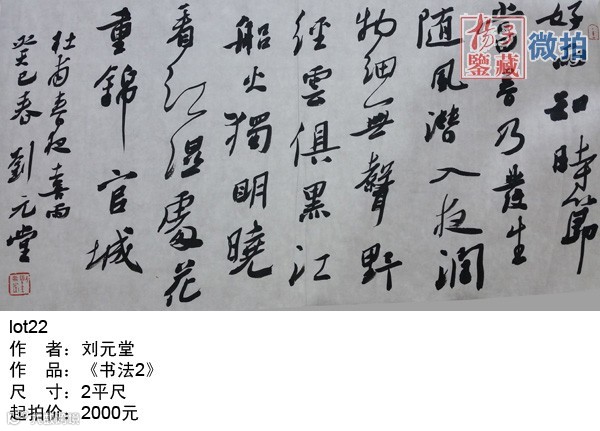 好雨知時節
當春乃發生
随風潜入夜潤
物細無聲野
徑雲俱黑江
船火獨明曉
看红濕處花
重錦官城
杜甫春夜喜雨
癸巳春 劉元堂
揚子鑒藏
微拍
lot22
作 者：刘元堂
作 品：《书法2》
尺 寸：2平尺
起拍价：2000元